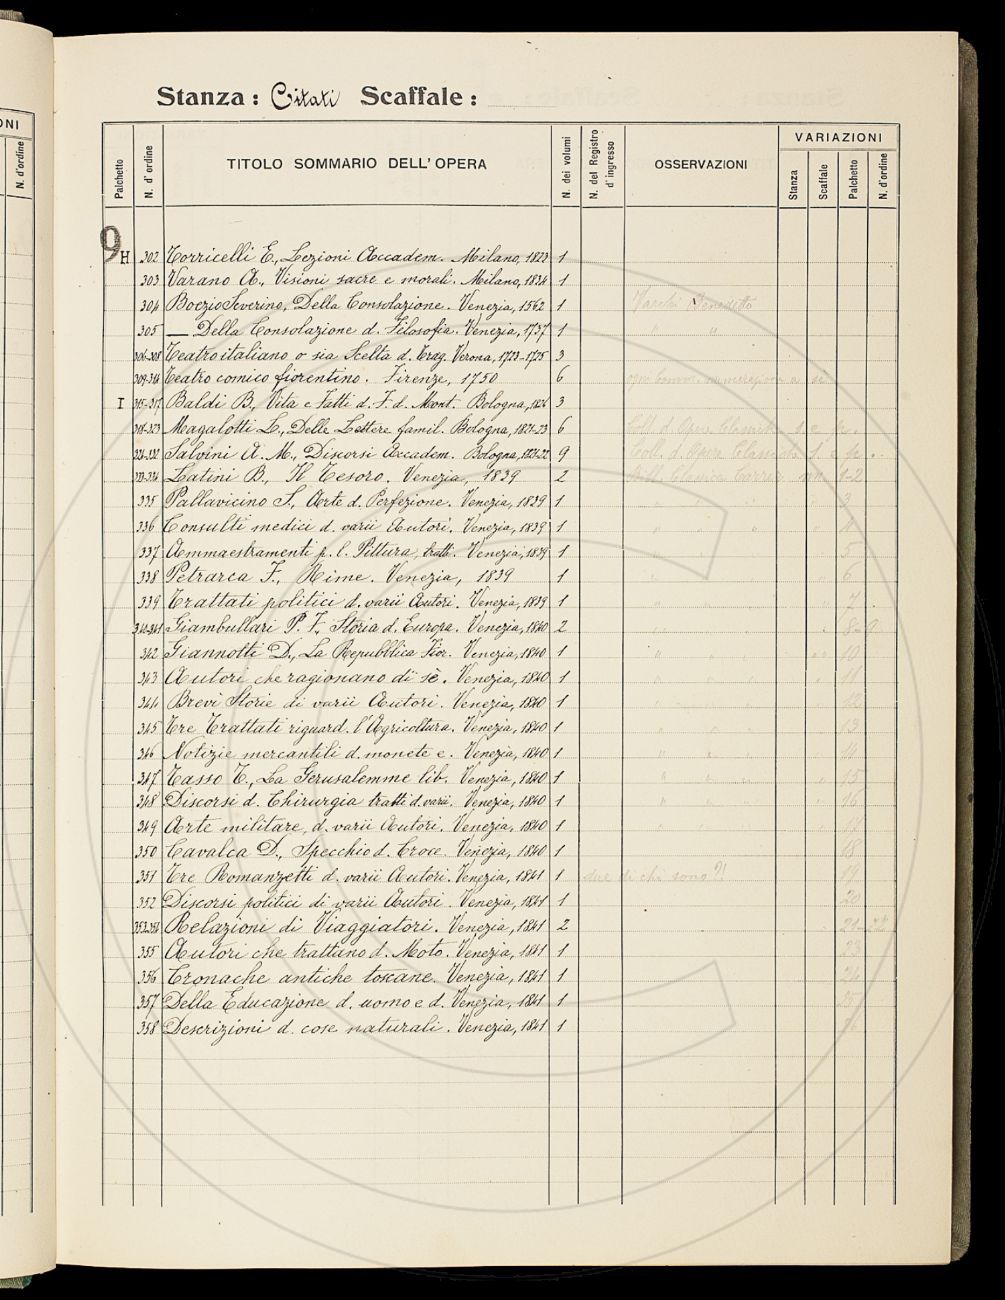 ONI
N. d'ordine
Stanza: Citati Scaffale:
Palchetto N. d'ordine TITOLO SOMMARIO DELL'OPERA N. dei volumi N. del Registro d'ingresso OSSERVAZIONI VARIAZIONI Stanza Scaffale Palchetto N. d'ordine
9 H 302 Torricelli E., Lezioni Accadem. Milano, 1823 1
303 Varano A., Visioni sacre e morali. Milano, 1834 1
304 Boezio Severino, Della Consolazione. Venezia, 1562 1 Varchi Benedetto
305 — Della Consolazione d. Filosofia. Venezia, 1737 1 "
306-308 Teatro italiano o sia Scelta d. Trag. Verona, 1723-1725 3
309-314 Teatro comico fiorentino. Firenze, 1750 6
I 315-317 Baldi B., Vita e Fatti d. F. d. Mont. Bologna, 1826 3
318-323 Magalotti L., Delle Lettere famil. Bologna, 1821-23 6 Coll. d. Opere Classiche s. e p.
324-332 Salvini A. M., Discorsi Accadem. Bologna, 1821-22 9 Coll. d. Opere Classiche s. e p.
333-334 Latini B., Il Tesoro. Venezia, 1839 2 1-2
335 Pallavicino S., Arte d. Perfezione. Venezia, 1839 1 3
336 Consulti medici d. varii Autori. Venezia, 1839 1
337 Ammaestramenti p. l. Pittura, tratt. Venezia, 1839 1 5
338 Petrarca F., Rime. Venezia, 1839 1 6
339 Trattati politici d. varii Autori. Venezia, 1839 1 7
340-341 Giambullari P. F., Storia d. Europa. Venezia, 1840 2 8-9
342 Giannotti D., La Repubblica Fior. Venezia, 1840 1 10
343 Autori che ragionano di sè. Venezia, 1840 1 11
344 Brevi Storie di varii Autori. Venezia, 1840 1 12
345 Tre Trattati riguard. l'Agricoltura. Venezia, 1840 1 13
346 Notizie mercantili d. monete e. Venezia, 1840 1 14
347 Tasso T., La Gerusalemme lib. Venezia, 1840 1 15
348 Discorsi d. Chirurgia tratti d. varii. Venezia, 1840 1 16
349 Arte militare, d. varii Autori. Venezia, 1840 1
350 Cavalca D., Specchio d. Croce. Venezia, 1840 1 18
351 Tre Romanzetti d. varii Autori. Venezia, 1841 1 due di chi sono?! 19
352 Discorsi politici di varii Autori. Venezia, 1841 1 20
353-354 Relazioni di Viaggiatori. Venezia, 1841 2 21-22
355 Autori che trattano d. Moto. Venezia, 1841 1 23
356 Cronache antiche toscane. Venezia, 1841 1 24
357 Della Educazione d. uomo e d. Venezia, 1841 1 25
358 Descrizioni d. cose naturali. Venezia, 1841 1